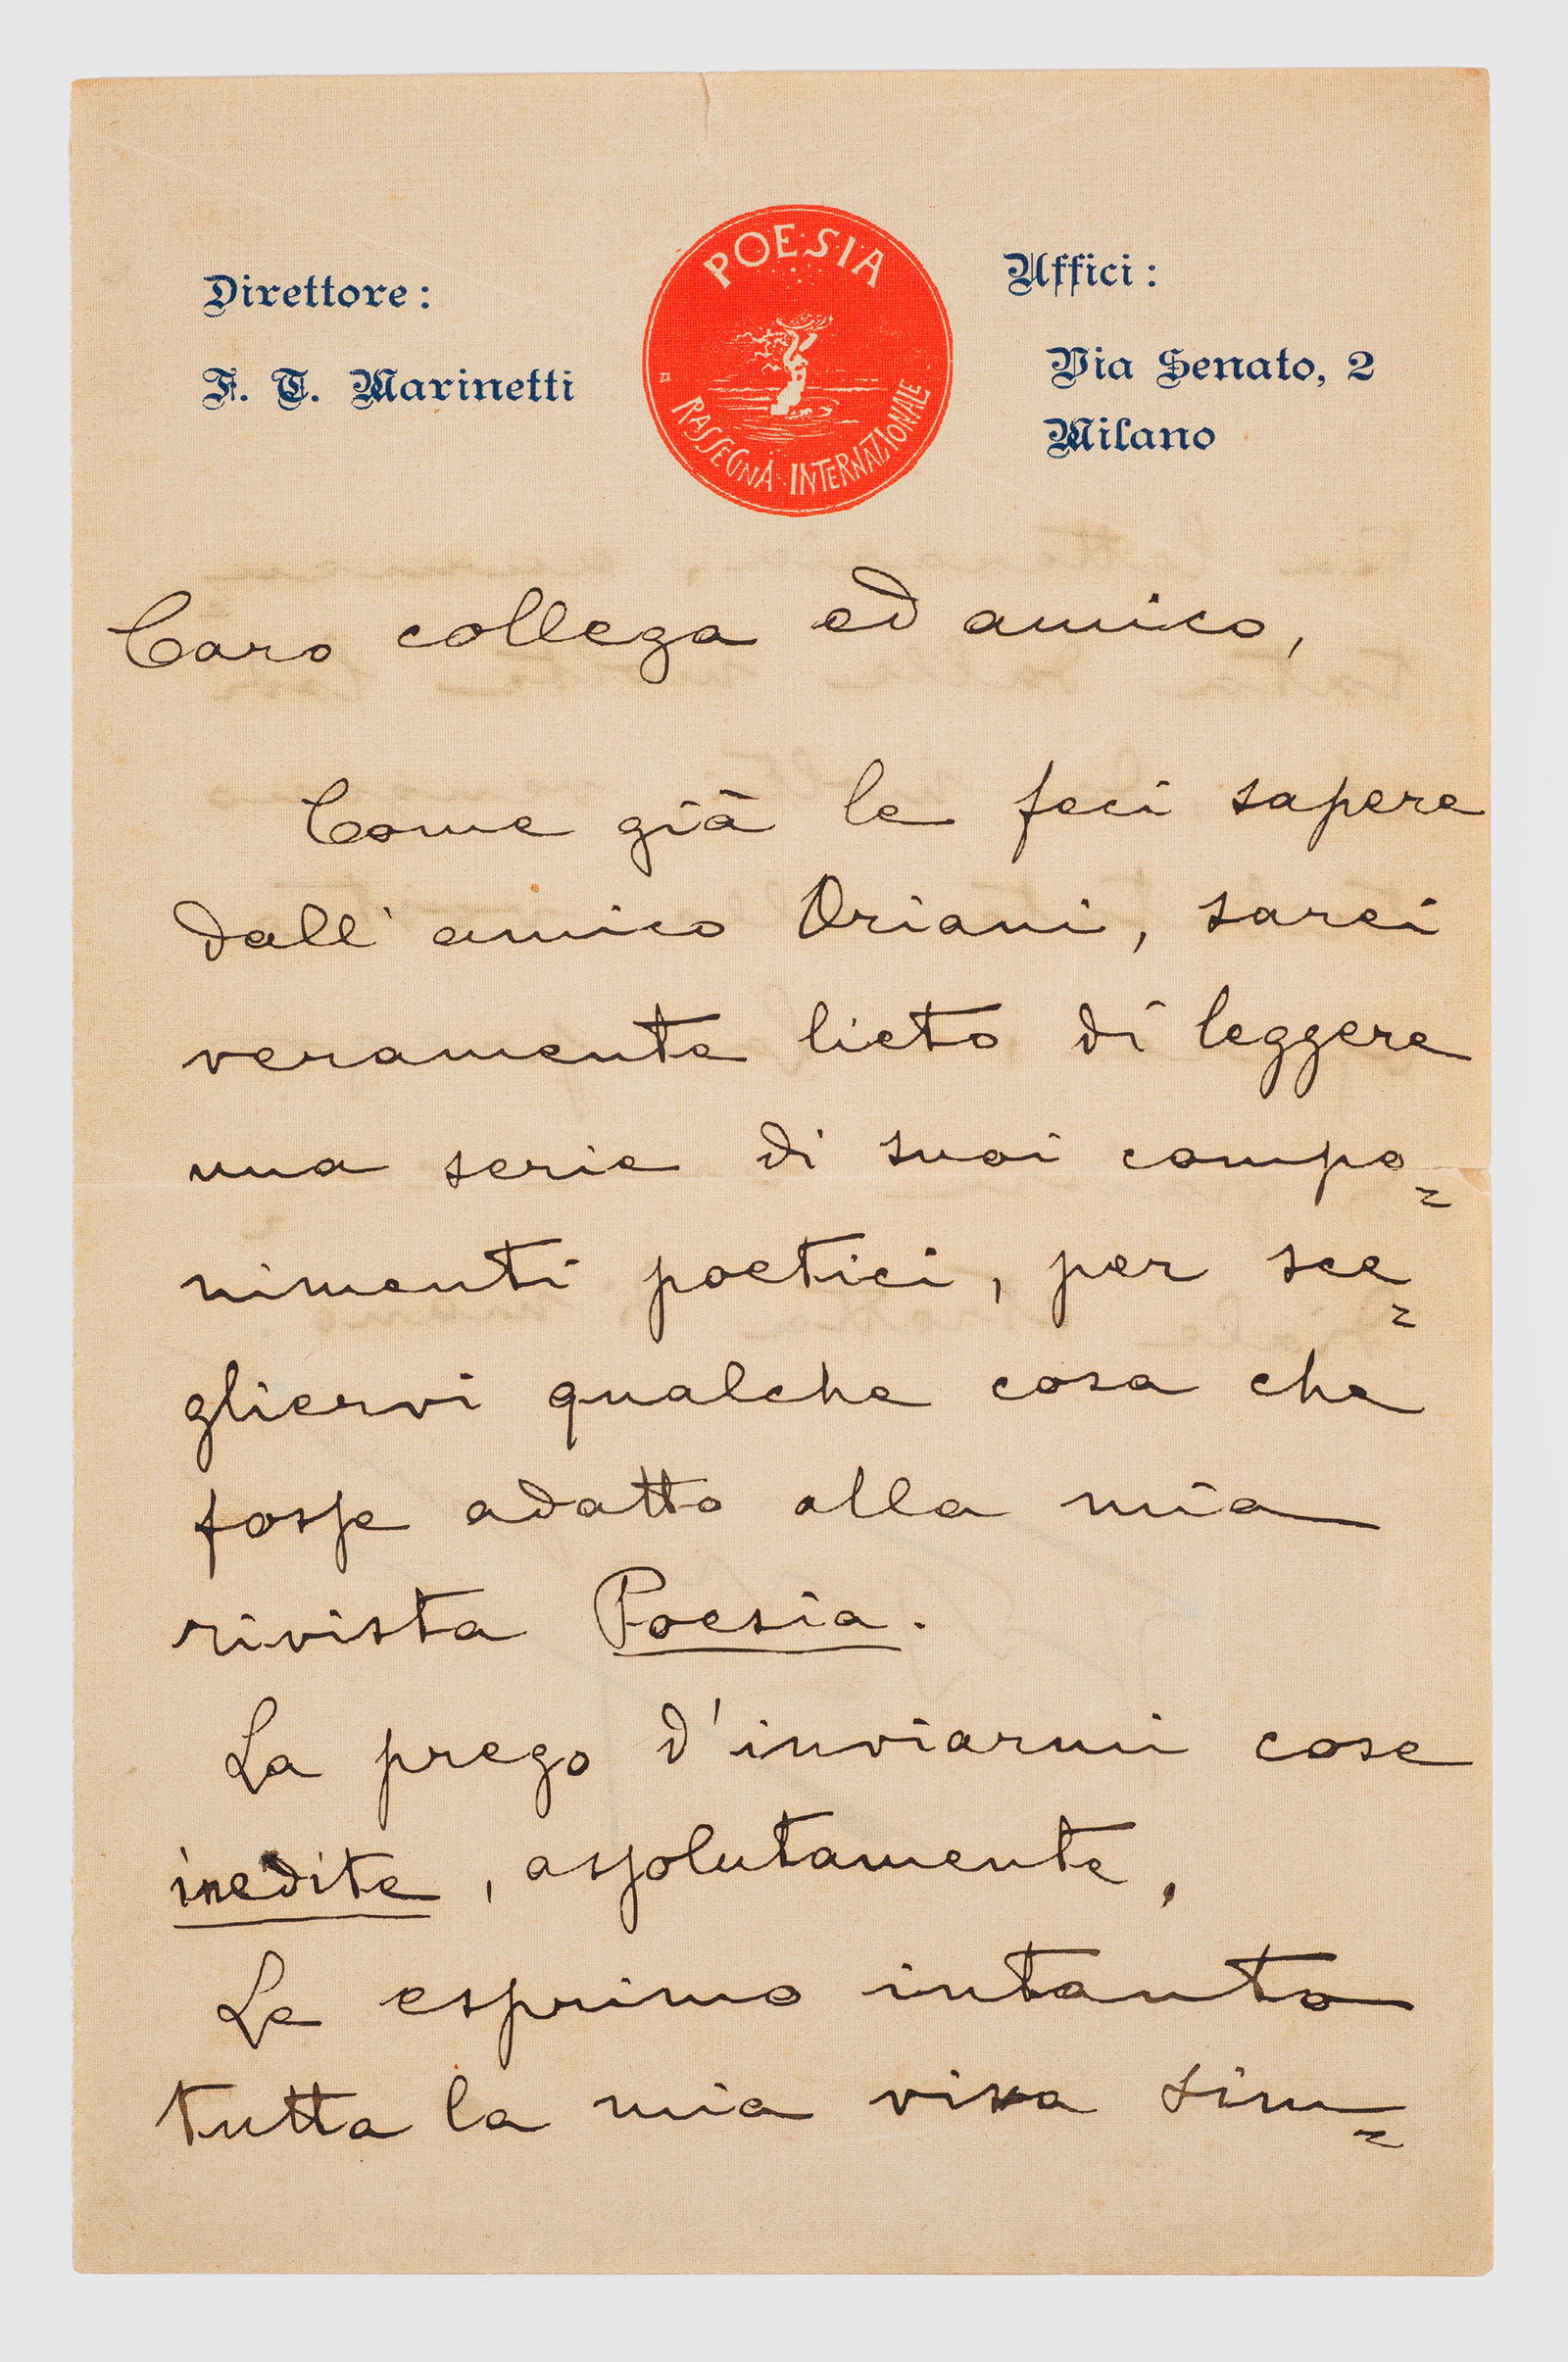 Direttore:
F. T. Marinetti
POESIA
RASSEGNA INTERNAZIONALE
Uffici:
Via Senato, 2
Milano
Caro collega ed amico,
Come già le feci sapere
dall'amico Oriani, sarei
veramente lieto di leggere
una serie di suoi compo=
nimenti poetici, per sce=
gliervi qualche cosa che
fosse adatto alla mia
rivista Poesia.
La prego d'inviarmi cose
inedite, assolutamente.
Le esprimo intanto
tutta la mia viva sim=